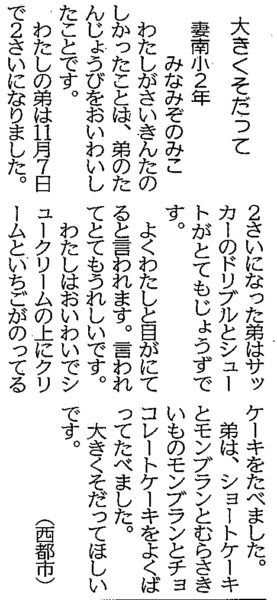 大きくそだって
妻南小2年
みなみぞのみこ
わたしがさいきんたの
しかったことは、弟のた
んじょうびをおいわいし
たことです。
わたしの弟は11月7日
で2さいになりました。
2さいになった弟はサッ
カーのドリブルとシュー
トがとてもじょうずで
す。
よくわたしと目がにて
ると言われます。言われ
てとてもうれしいです。
わたしはおいわいでシ
ュークリームの上にクリ
ームといちごがのってる
ケーキをたべました。
弟は、ショートケーキ
とモンブランとむらさき
いものモンブランとチョ
コレートケーキをよくば
ってたべました。
大きくそだってほしい
です。
(西都市)